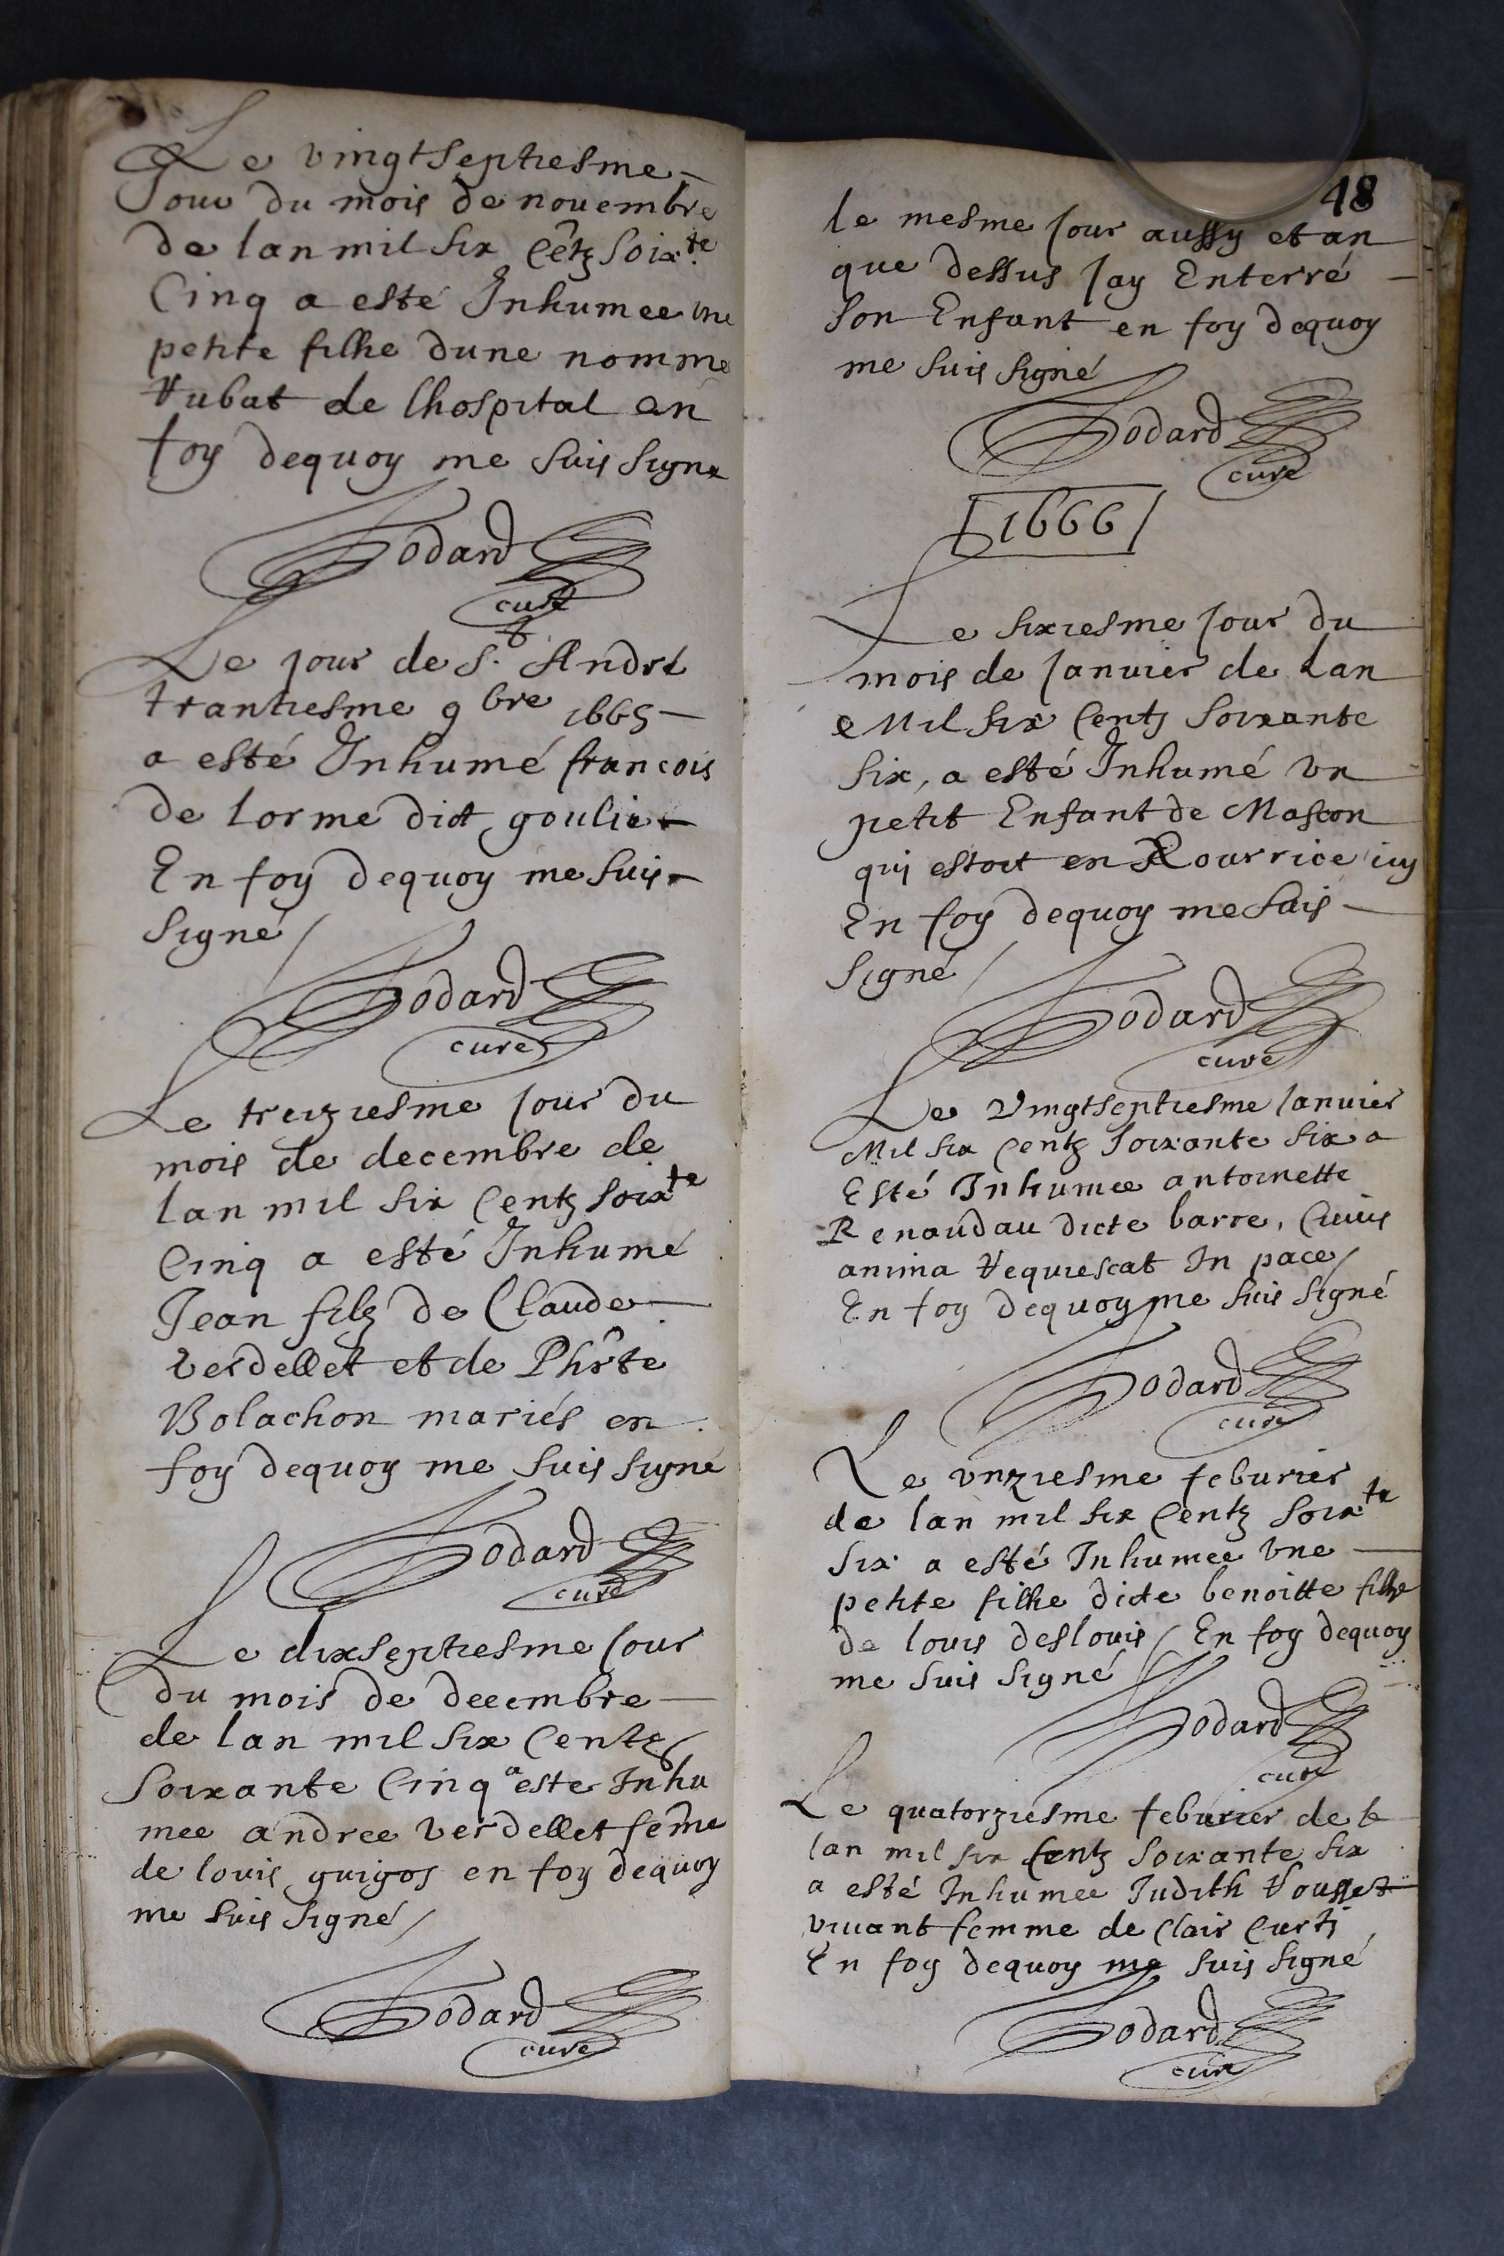 Le vingtseptiesme
Jour du mois de nouembre
de lan mil six Cētz soixte
Cinq a esté Inhumee une
petite filhe dune nomme
Rubat de lhospital en
foy dequoy me suis signe
Godard
curé
Le jour de St André
trantiesme 9bre 1665
a esté Inhumé francois
de lorme dict goulie
En foy dequoy me suis
signé
Godard
curé
Le treiziesme jour du
mois de decembre de
lan mil six Centz soixte
Cinq a esté Inhumé
Jean filz de Claude
verdellet et de Phrte
Bolachon mariés en
foy dequoy me suis signé
Godard
curé
Le dixseptiesme jour
du mois de decembre
de lan mil six Centz
soixante Cinq a este Inhu
mee andree verdellet feme
de louis guigos en foy dequoy
me suis signé
Godard
curé
48
le mesme jour aussy et an
que dessus jay Enterré
son Enfant en foy dequoy
me suis signé
Godard
curé
1666
Le sixiesme jour du
mois de januier de lan
Mil six Centz soixante
six, a esté Inhumé un
petit Enfant de Mascon
qui estoit en Nourrice icy
En foy dequoy me suis
signé
Godard
curé
Le Vingtseptiesme januier
Mil six Centz soixante six a
Esté Inhumee antoinette
Renaudau dicte barre, Cuius
anima requiescat In pace
En foy dequoy me suis signé
Godard
curé
Le unziesme feburier
de lan mil six Centz soixte
six a esté Inhumee une
petite filhe dicte benoitte filhe
de louis deslouis En foy dequoy
me suis signé
Godard
curé
Le quatorziesme feburier de
lan mil six Centz soixante six
a esté Inhumee Judith Rousset
viuant femme de Clair Curti
En foy dequoy me suis signé
Godard
curé